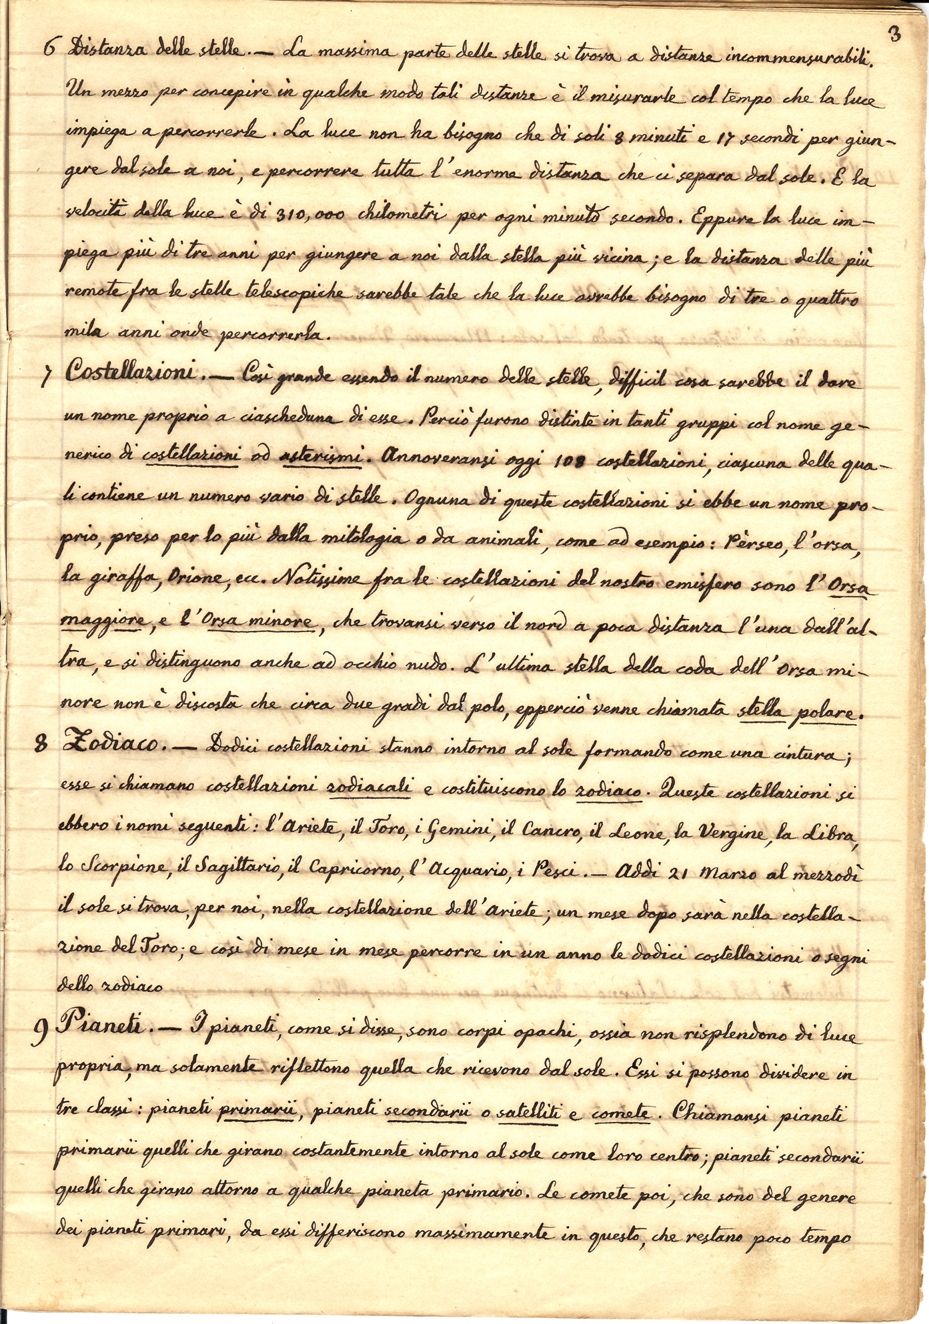 3
6 Distanza delle stelle. — La massima parte delle stelle si trova a distanze incommensurabili.
Un mezzo per concepire in qualche modo tali distanze è il misurarle col tempo che la luce
impiega a percorrerle. La luce non ha bisogno che di soli 8 minuti e 17 secondi per giun-
gere dal sole a noi, e percorrere tutta l'enorme distanza che ci separa dal sole. E la
velocità della luce è di 310,000 chilometri per ogni minuto secondo. Eppure la luce im-
piega più di tre anni per giungere a noi dalla stella più vicina; e la distanza delle più
remote fra le stelle telescopiche sarebbe tale che la luce avrebbe bisogno di tre o quattro
mila anni onde percorrerla.
7 Costellazioni. — Così grande essendo il numero delle stelle, difficil cosa sarebbe il dare
un nome proprio a ciascheduna di esse. Perciò furono distinte in tanti gruppi col nome ge-
nerico di costellazioni od asterismi. Annoveransi oggi 108 costellazioni, ciascuna delle qua-
li contiene un numero vario di stelle. Ognuna di queste costellazioni si ebbe un nome pro-
prio, preso per lo più dalla mitologia o da animali, come ad esempio: Pèrseo, l'orsa,
la giraffa, Orione, ecc. Notissime fra le costellazioni del nostro emisfero sono l'Orsa
maggiore, e l'Orsa minore, che trovansi verso il nord a poca distanza l'una dall'al-
tra, e si distinguono anche ad occhio nudo. L'ultima stella della coda dell'Orsa mi-
nore non è discosta che circa due gradi dal polo, epperciò venne chiamata stella polare.
8 Zodiaco. — Dodici costellazioni stanno intorno al sole formando come una cintura;
esse si chiamano costellazioni zodiacali e costituiscono lo zodiaco. Queste costellazioni si
ebbero i nomi seguenti: l'Ariete, il Toro, i Gemini, il Cancro, il Leone, la Vergine, la Libra,
lo Scorpione, il Sagittario, il Capricorno, l'Acquario, i Pesci. — Addì 21 Marzo al mezzodì
il sole si trova, per noi, nella costellazione dell'Ariete; un mese dopo sarà nella costella-
zione del Toro; e così di mese in mese percorre in un anno le dodici costellazioni o segni
dello zodiaco
9 Pianeti. — I pianeti, come si disse, sono corpi opachi, ossia non risplendono di luce
propria, ma solamente riflettono quella che ricevono dal sole. Essi si possono dividere in
tre classi: pianeti primarii, pianeti secondarii o satelliti e comete. Chiamansi pianeti
primarii quelli che girano costantemente intorno al sole come loro centro; pianeti secondarii
quelli che girano attorno a qualche pianeta primario. Le comete poi, che sono del genere
dei pianeti primari, da essi differiscono massimamente in questo, che restano poco tempo